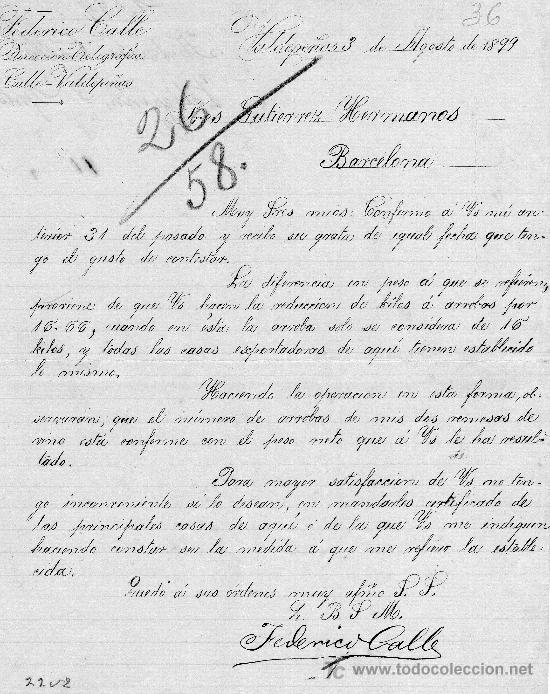 36
Federico Calle
Dirección Telegráfica
Calle-Valdepeñas
Valdepeñas 3 de Agosto de 1899
26
58.
Sres Gutierrez Hermanos
Barcelona
Muy Sres mios: Confirmo á Vs mi an-
terior 31 del pasado y recibo su grata de igual fecha que ten-
go el gusto de contestar.
La diferencia en peso á que se refieren,
proviene de que Vs hacen la reduccion de kilos á arrobas por
15-55, cuando en ésta la arroba solo se considera de 15
kilos, y todas las casas exportadoras de aquí tienen establecido
lo mismo.
Haciendo la operacion en esta forma, ob-
servarán, que el número de arrobas de mis dos remesas de
vino está conforme con el peso neto que á Vs le ha resul-
tado.
Para mayor satisfaccion de Vs no ten-
go inconveniente si lo desean, en mandarles certificado de
las principales casas de aquí ó de la que Vs me indiquen
haciendo constar ser la medida á que me refiero la estable-
cida.
Quedo á sus órdenes muy afmo S. S.
Q. B. S. M.
Federico Calle
© www.todocoleccion.net